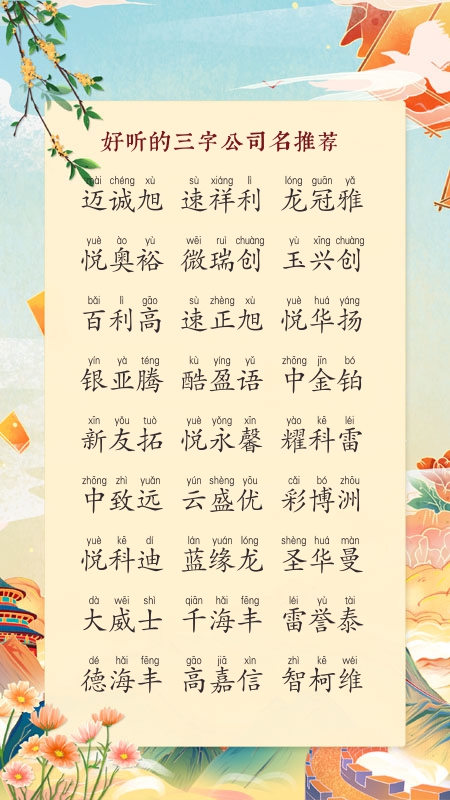 好听的三字公司名推荐
mài chéng xù sù xiáng lì lóng guān yǎ
迈诚旭 速祥利 龙冠雅
yuè ào yù wēi ruì chuàng yù xīng chuàng
悦奥裕 微瑞创 玉兴创
bǎi lì gāo sù zhèng xù yuè huá yáng
百利高 速正旭 悦华扬
yín yà téng kù yíng yǔ zhōng jīn bó
银亚腾 酷盈语 中金铂
xīn yǒu tuò yuè yǒng xīn yào kē léi
新友拓 悦永馨 耀科雷
zhōng zhì yuǎn yún shèng yōu cǎi bó zhōu
中致远 云盛优 彩博洲
yuè kē dí lán yuán lóng shèng huá màn
悦科迪 蓝缘龙 圣华曼
dà wēi shì qiān hǎi fēng léi yù tài
大威士 千海丰 雷誉泰
dé hǎi fēng gāo jiā xìn zhì kē wéi
德海丰 高嘉信 智柯维